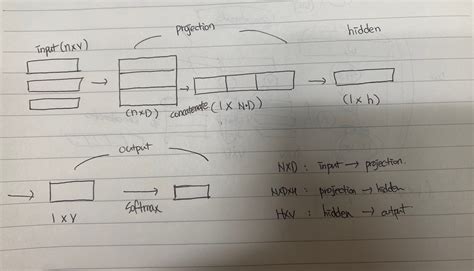 projection
hidden
input (n×V)
(n×D)
concatenate (1 × N·D)
(1 × h)
output
1 × V
Softmax
N×D : input → projection.
N×D×H : projection → hidden
H×V : hidden → output